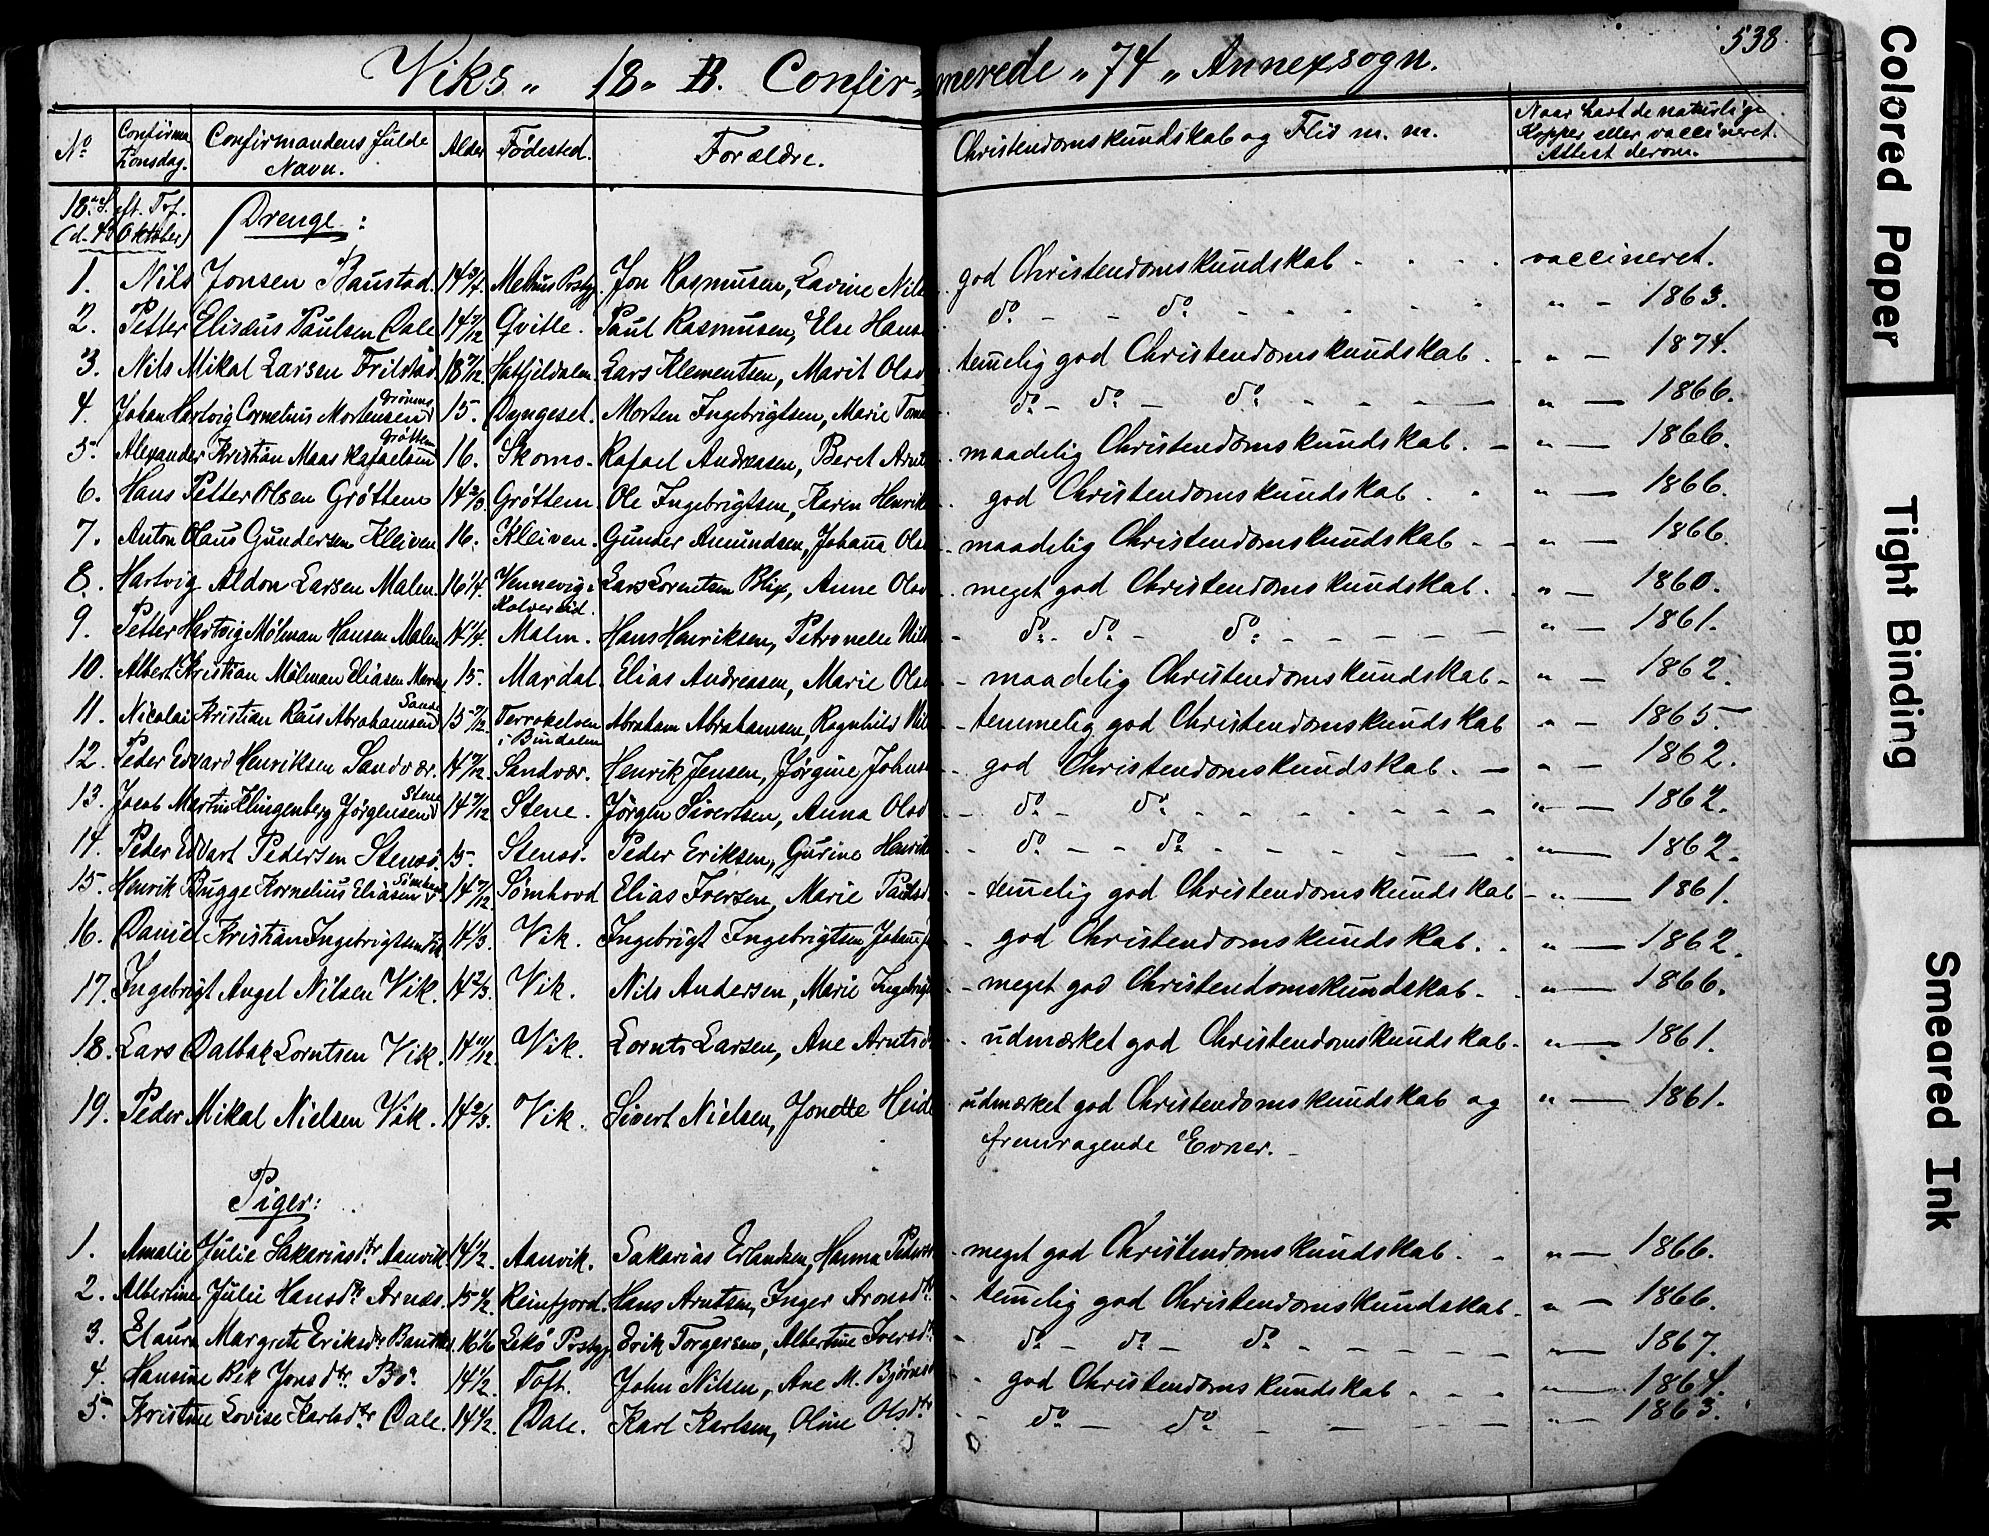 538
Viks „ 18 „ B. Confirmerede „ 74 „ Annexsogn.
No Confirmationsdag. Confirmandens fulde Navn. Alder Fødested. Forældre. Christendomskundskab og Flid m. m. Naar havt de naturlige Kopper eller vaccineret. Attest derom.
18de S. eft. Tref.
(d. 4de Oktober) Drenge:
1. Nils Jonsen Baustad. Jon Rasmusen, Lavine Nils god Christendomskundskab vaccineret. 1863.
2. Petter Elisæus Paulsen Dale 14 Qvitle. Paul Rasmusen, Else Hans do do
3. Nils Mikal Larsen 18 Hatfjeldalen. Lars Klementsen, Marit Olsd temelig god Christendomskundskab „ 1874.
4. Johan Hartvig Cornelius Mortensen 15. Dyngeset. Morten Ingebrigtsen, Marie do do do „ 1866.
5. Alexander Kristian Maas Rafaelsen Grøttem 16. Skomo. Rafael Andreasen, Beret Arnt maadelig Christendomskundskab. „ 1866.
6. Hans Petter Olsen Grøttem 14 2/3 Grøttem. Ole Ingebrigtsen, Karen Henrik god Christendomskundskab „ 1866.
7. Anton Olaus Gundersen Kleiven 16. Kleiven. Gunder Amundsen, Johanna Ols maadelig Christendomskundskab „ 1866.
8. Hartvig Aldon Larsen Malm. 16 1/4. Vennevig i Kolvereid. Lars Lorentsen Blix, Anne Olsd meget god Christendomskundskab. „ 1860.
9. Petter Hartvig Mølman Hansen Malm Malm. Hans Henriksen, Petronelle Nils do do do „ 1861.
10. Albert Kristian Mølman Eliasen 15. Mardal. Elias Andreasen, Marie Ols maadelig Christendomskundskab „ 1862.
11. Nicolai Kristian Raus Abrahamsen 15 Terrakelven i Bindalen Abraham Abrahamsen, Ragnhild Nil temmelig god Christendomskundskab „ 1865.
12. Peder Edvard Henriksen Sandvær. 14 Sandvær. Henrik Jensen, Jørgine Johns god Christendomskundskab. „ 1862.
13. Jacob Martin Klingenberg Jørgensen Stene 14 Stene. Jørgen Sivertsen, Anna Olsd do do „ 1862.
14. Peder Edvart Pedersen Stensø. 15. Stensø. Peder Eriksen, Gurine Henrik do do „ 1862.
15. Henrik Bugge Kornelius Eliasen Sømhovd 14 Sømhovd Elias Iversen, Marie Paulsd temelig god Christendomskundskab „ 1861.
16. Daniel Kristian Ingebrigtsen Vik 14 1/3. Vik. Ingebrigt Ingebrigtsen, god Christendomskundskab. „ 1862.
17. Ingebrigt Angel Nilsen Vik. 14 2/3. Vik. Nils Andersen, Marie Ingebrigt meget god Christendomskundskab. „ 1866.
18. Lars Dalbak Lorntsen Vik. 14 11/12. Vik. Lornts Larsen, Ane Arntsd udmærket god Christendomskundskab. „ 1861.
19. Peder Mikal Nielsen Vik. 14 2/3. Vik. Sivert Nielsen, Jonette udmærket god Christendomskundskab og „ 1861.
fremragende Evner.
Piger:
1. Amalie Julie Sakariasdtr Aanvik. 14 1/2. Aanvik. Sakarias Erlandsen, Hanna Peders meget god Christendomskundskab. „ 1866.
2. Albertine Julie Hansdtr Arnæs. 15 1/2. Reinfjord. Hans Arntsen, Inger Aronsdtr. temelig god Christendomskundskab. „ 1866.
3. Margrete Eriksdtr 16 1/6 Lekø Erik Torgersen, Albertine Iversdtr. do do do „ 1867.
4. Hansine Bek Jonsdtr. Bø. 14 1/2. Toft. John Nilsen, Ane M. Bjørns god Christendomskundskab „ 1864.
5. Kristine Lovise Karlsdtr Dale. 14 1/2. Dale. Karl Karlsen, Oline Olsdtr do do „ 1863.
Colored Paper
Tight Binding
Smeared Ink